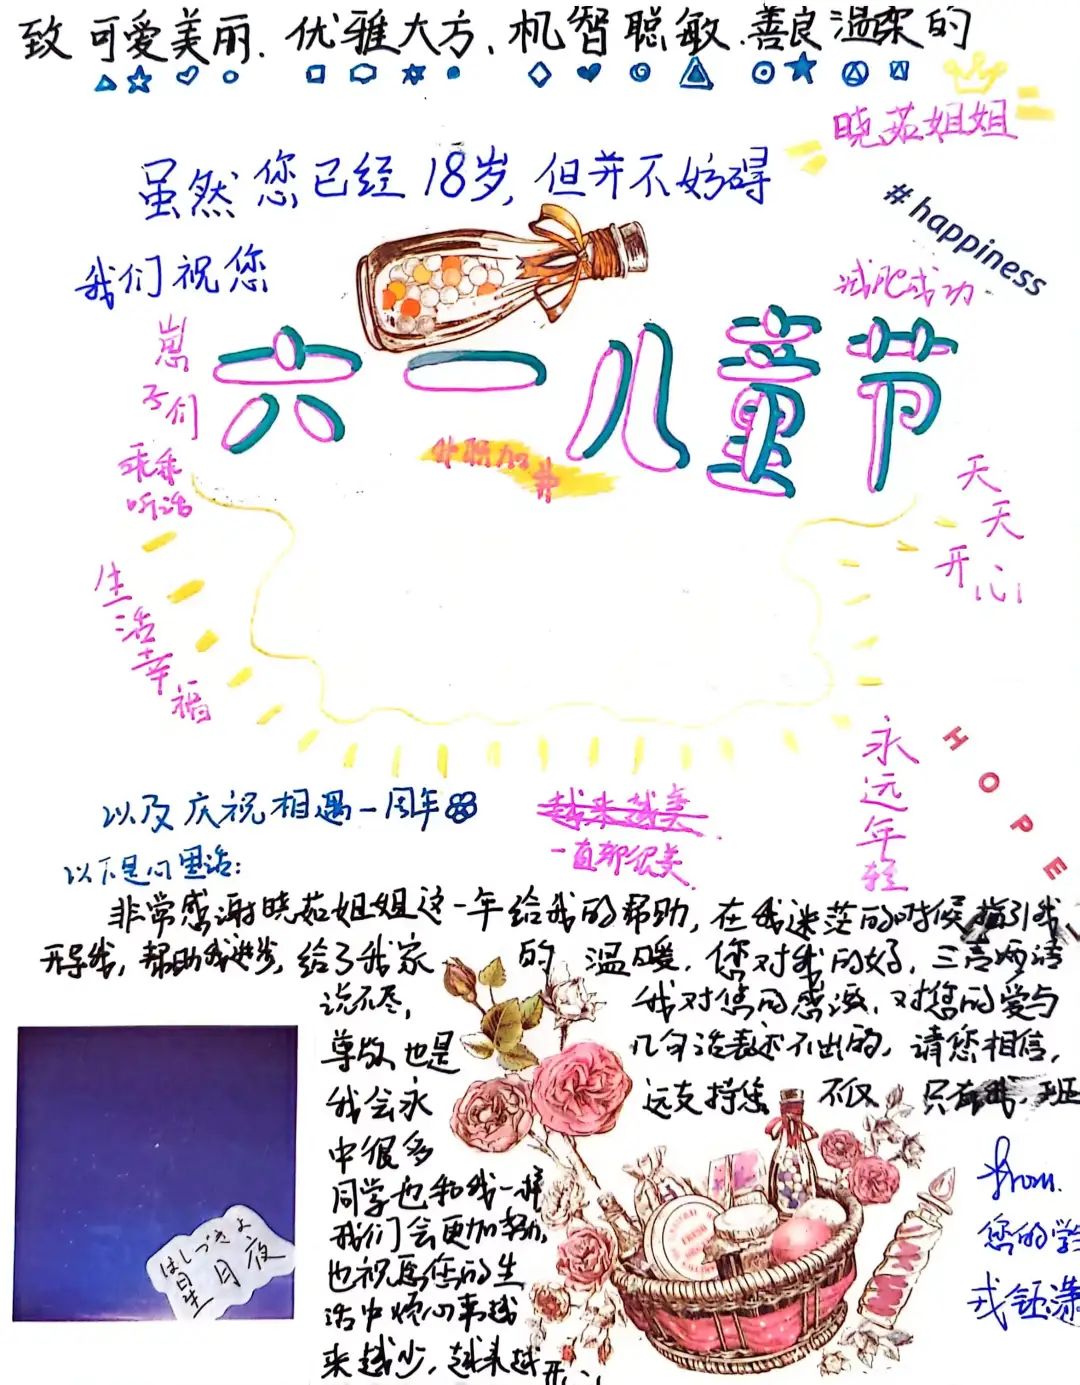 致可爱美丽、优雅大方、机智聪敏、善良温柔的
晓茹姐姐
虽然您已经18岁,但并不妨碍
我们祝您
#happiness
减肥成功
六一儿童节
崽子们
乖乖
听话
升职加
天天
开心
生活幸福
永远年轻
HOPE
以及庆祝相遇一周年
越来越美
一直都很美
以下是心里话:
非常感谢晓茹姐姐这一年给我的帮助,在我迷茫的时候指引我
开导我,帮助我进步,给了我家的温暖,您对我的好,三言两语
说不尽,我对您的感激,对您的爱与
尊敬也是几句话表述不出的,请您相信,
我会永远支持您不仅只有我,班
中很多
同学也和我一样
我们会更加努力,
也祝愿您的生
活中烦心事越
来越少,越来越开心
from.
您的学
戎钰潇
ほしづきよ
星月夜